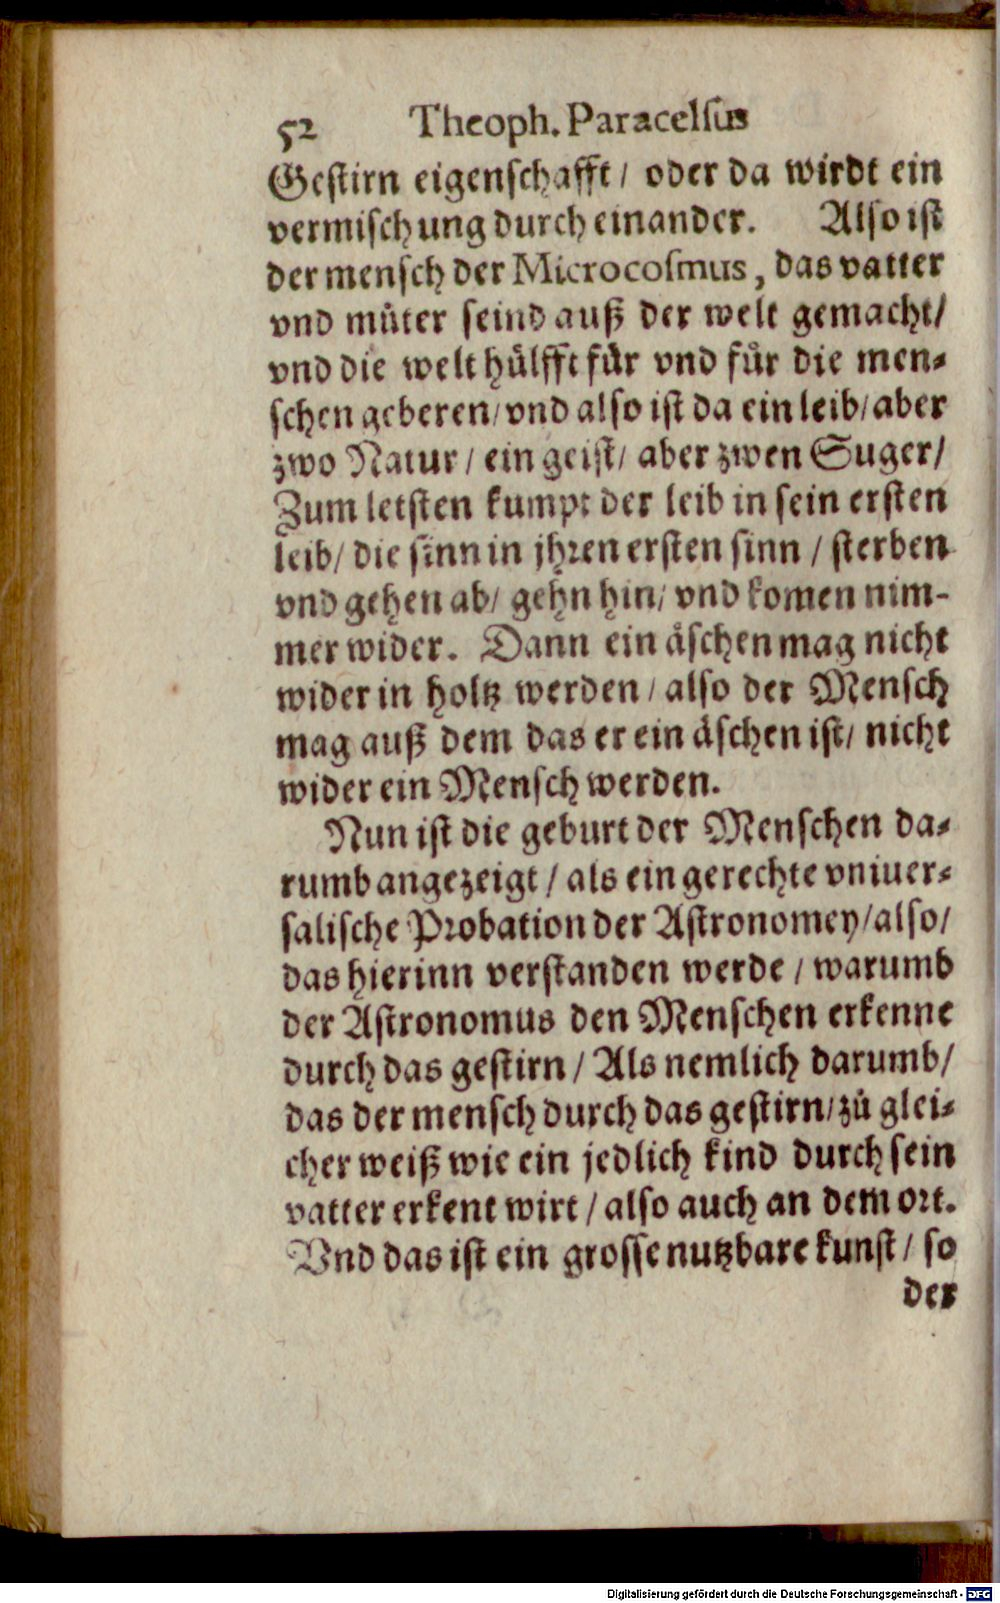 52 Theoph. Paracelsus
Gestirn eigenschafft/ oder da wirdt ein
vermischung durch einander. Also ist
der mensch der Microcosmus, das vatter
vnd můter seind auß der welt gemacht/
vnd die welt hülfft für vnd für die men-
schen geberen/ vnd also ist da ein leib/ aber
zwo Natur/ ein geist/ aber zwen Suger/
Zum letsten kumpt der leib in sein ersten
leib/ die sinn in jhren ersten sinn/ sterben
vnd gehen ab/ gehn hin/ vnd komen nim-
mer wider. Dann ein äschen mag nicht
wider in holtz werden/ also der Mensch
mag auß dem das er ein äschen ist/ nicht
wider ein Mensch werden.
Nun ist die geburt der Menschen da-
rumb angezeigt/ als ein gerechte vniuer-
salische Probation der Astronomey/ also/
das hierinn verstanden werde/ warumb
der Astronomus den Menschen erkenne
durch das gestirn/ Als nemlich darumb/
das der mensch durch das gestirn/ zů glei-
cher weiß wie ein jedlich kind durch sein
vatter erkent wirt/ also auch an dem ort.
Vnd das ist ein grosse nutzbare kunst/ so
der
Digitalisierung gefördert durch die Deutsche Forschungsgemeinschaft - DFG